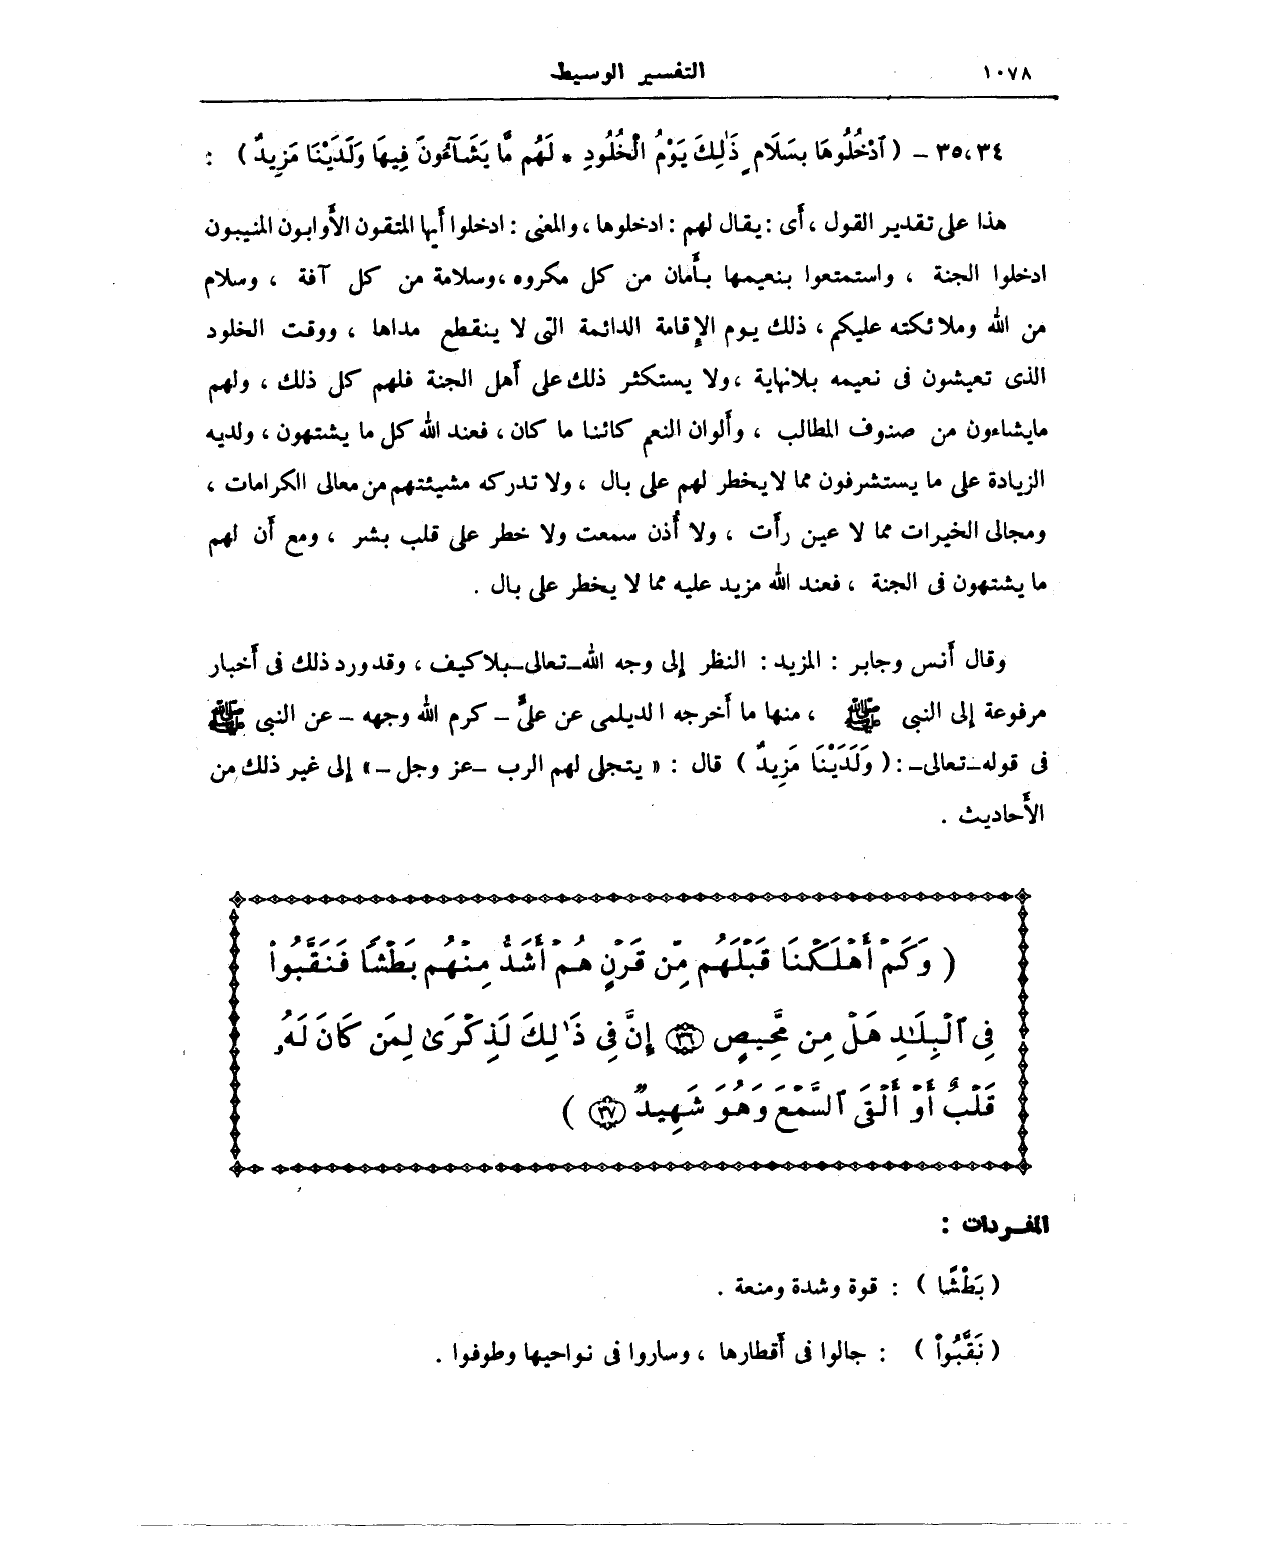 ١٠٧٨ التفسير الوسيط
٣٥،٣٤ – ( ٱدْخُلُوهَا بِسَلَامٍ ذَٰلِكَ يَوْمُ الْخُلُودِ * لَهُم مَّا يَشَآءُونَ فِيهَا وَلَدَيْنَا مَزِيدٌ ) :
هذا على تقدير القول ، أى : يقال لهم : ادخلوها ، والمعنى : ادخلوا أيها المتقون الأوابون المنيبون
ادخلوا الجنة ، واستمتعوا بنعيمها بأمان من كل مكروه ،وسلامة من كل آفة ، وسلام
من الله وملائكته عليكم ، ذلك يوم الإقامة الدائمة التى لا ينقطع مداها ، ووقت الخلود
الذى تعيشون فى نعيمه بلانهاية ،ولا يستكثر ذلك على أهل الجنة فلهم كل ذلك ، ولهم
مايشاءون من صنوف المطالب ، وألوان النعم كائنا ما كان ، فعند الله كل ما يشتهون ، ولديه
الزيادة على ما يستشرفون مما لايخطر لهم على بال ، ولا تدركه مشيئتهم من معالى الكرامات ،
ومجالى الخيرات مما لا عين رأت ، ولا أذن سمعت ولا خطر على قلب بشر ، ومع أن لهم
ما يشتهون فى الجنة ، فعند الله مزيد عليه مما لا يخطر على بال .
وقال أنس وجابر : المزيد : النظر إلى وجه الله_تعالى_بلاكيف ، وقدورد ذلك فى أخبار
مرفوعة إلى النبى ﷺ ، منها ما أخرجه الديلمى عن علىٍّ – كرم الله وجهه – عن النبى ﷺ
فى قوله_تعالى_ :( وَلَدَيْنَا مَزِيدٌ ) قال : « يتجلى لهم الرب _عز وجل_ » إلى غير ذلك من
الأحاديث .
( وَكَمْ أَهْلَكْنَا قَبْلَهُم مِّن قَرْنٍ هُمْ أَشَدُّ مِنْهُم بَطْشًا فَنَقَّبُواْ
فِى ٱلْبِلَٰدِ هَلْ مِن مَّحِيصٍ ٣٦ إِنَّ فِى ذَٰلِكَ لَذِكْرَىٰ لِمَن كَانَ لَهُۥ
قَلْبٌ أَوْ أَلْقَى ٱلسَّمْعَ وَهُوَ شَهِيدٌ ٣٧ )
المفـردات :
( بَطْشًا ) : قوة وشدة ومنعة .
( نَقَّبُواْ ) : جالوا فى أقطارها ، وساروا فى نواحيها وطوفوا .